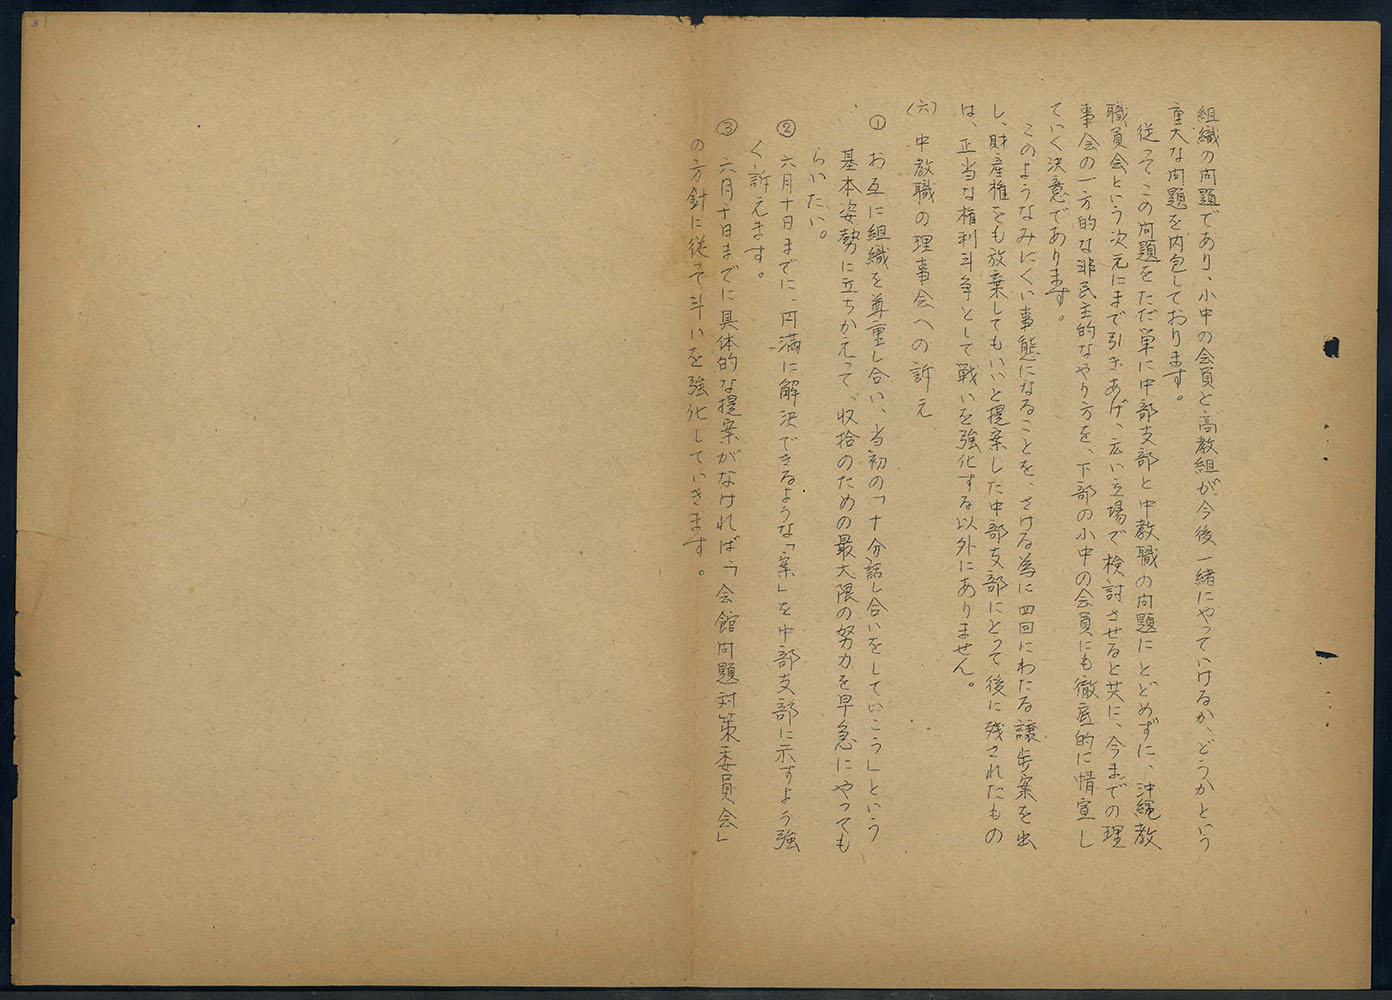 組織の問題であり、小中の会員と高教組が今後一緒にやっていけるか、どうかという
重大な問題を内包しております。
従って この問題をただ単に中部支部と中教職の問題にとどめずに、沖縄教
職員会という次元にまで引きあげ、広い立場で検討させると共に、今までの理
事会の一方的な非民主的なやり方を、下部の小中の会員にも徹底的に情宣し
ていく決意であります。
このようなみにくい事態になることを、さける為に四回にわたる譲歩案を出
し、財産権をも放棄してもいいと提案した中部支部にとって後に残されたもの
は、正当な権利斗争として戦いを強化する以外にありません。
(六) 中教職の理事会への訴え
① お互に組織を尊重し合い、当初の「十分話し合いをしていこう」という
基本姿勢に立ちかえって、収拾のための最大限の努力を早急にやっても
らいたい。
② 六月十日までに、円満に解決できるような「案」を中部支部に示すよう強
く訴えます。
③ 六月十日までに具体的な提案がなければ「会館問題対策委員会」
の方針に従って斗いを強化していきます。